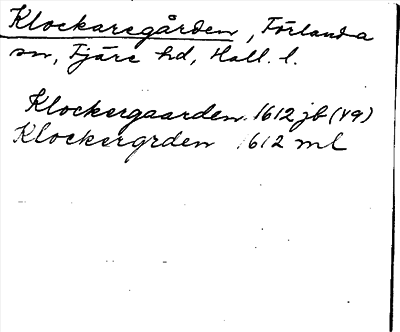 Klockaregården, Förlanda
sn, Fjäre hd, Hall. l.
Klockergaarden. 1612 jb (49)
Klockergrden 1612 ml